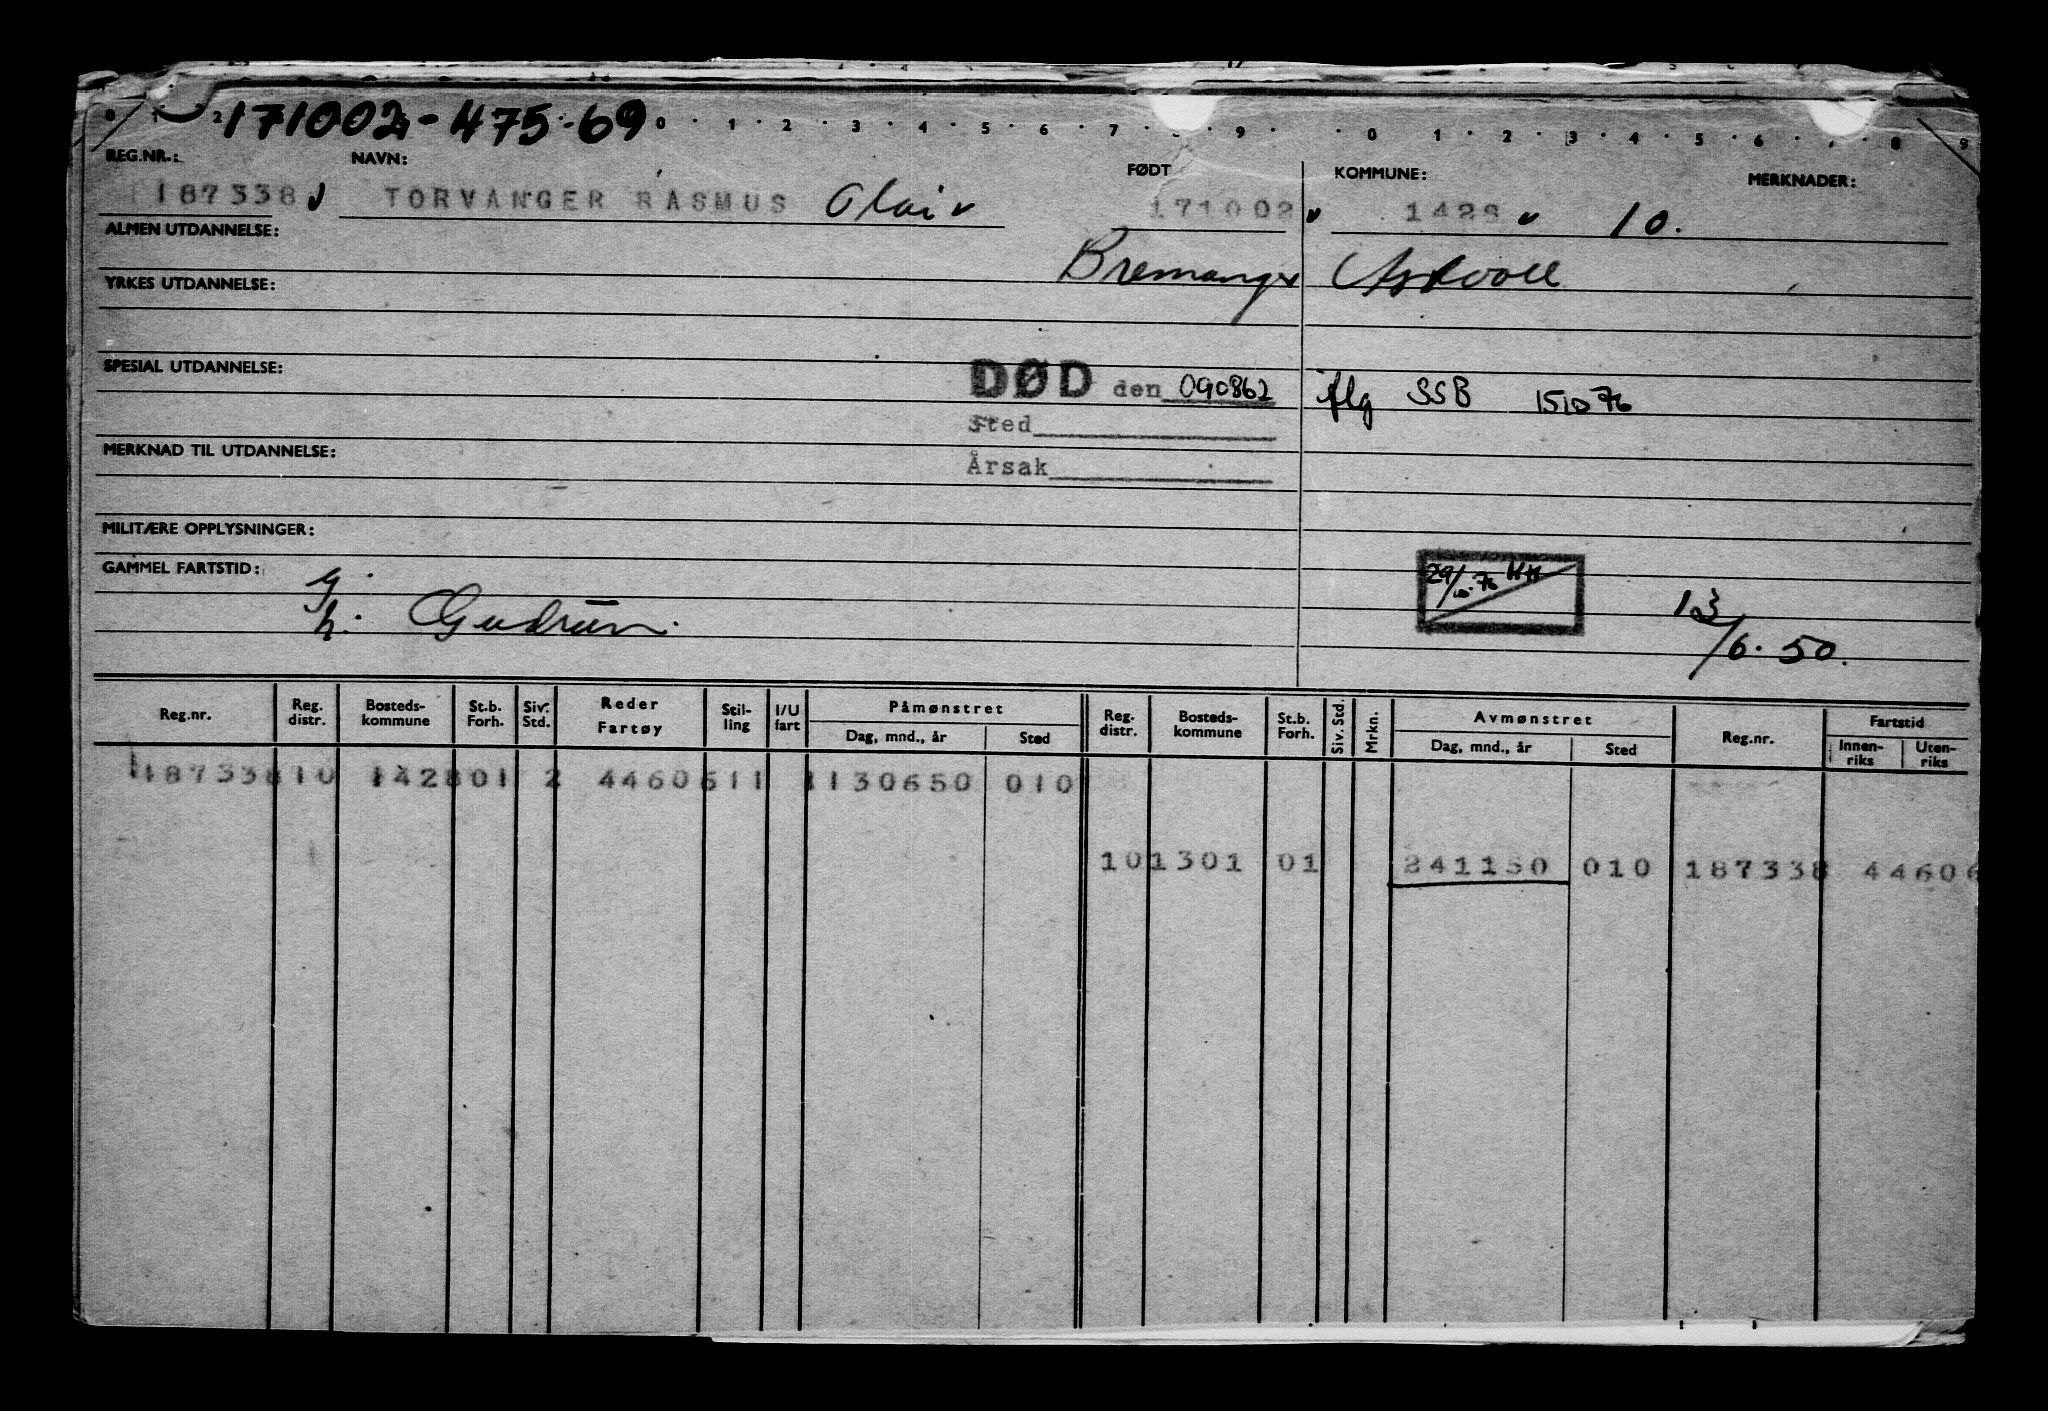 171002-475-69
REG.NR.: NAVN: FØDT KOMMUNE: MERKNADER:
187338 TORVANGER RASMUS Olai 171002 1428 10.
ALMEN UTDANNELSE: Bremanger Askvoll
YRKES UTDANNELSE:
SPESIAL UTDANNELSE:
DØD den 090862 iflg SSB 151076
Sted
Årsak
MERKNAD TIL UTDANNELSE:
MILITÆRE OPPLYSNINGER:
GAMMEL FARTSTID:
29/10.76 HH
G. h. Gudrun. 13/6.50.
Reg.nr. Reg. distr. Bosteds-kommune St.b. Forh. Siv. Std. Reder Fartøy Stil-ling I/U fart Påmønstret Dag, mnd., år Sted Reg. distr. Bosteds-kommune St.b. Forh. Siv. Std. Mrkn. Avmønstret Dag, mnd., år Sted Reg.nr. Fartstid Innen-riks Uten-riks
187338 10 1428 01 2 44606 11 1 130650 010
10 1301 01 241150 010 187338 44606